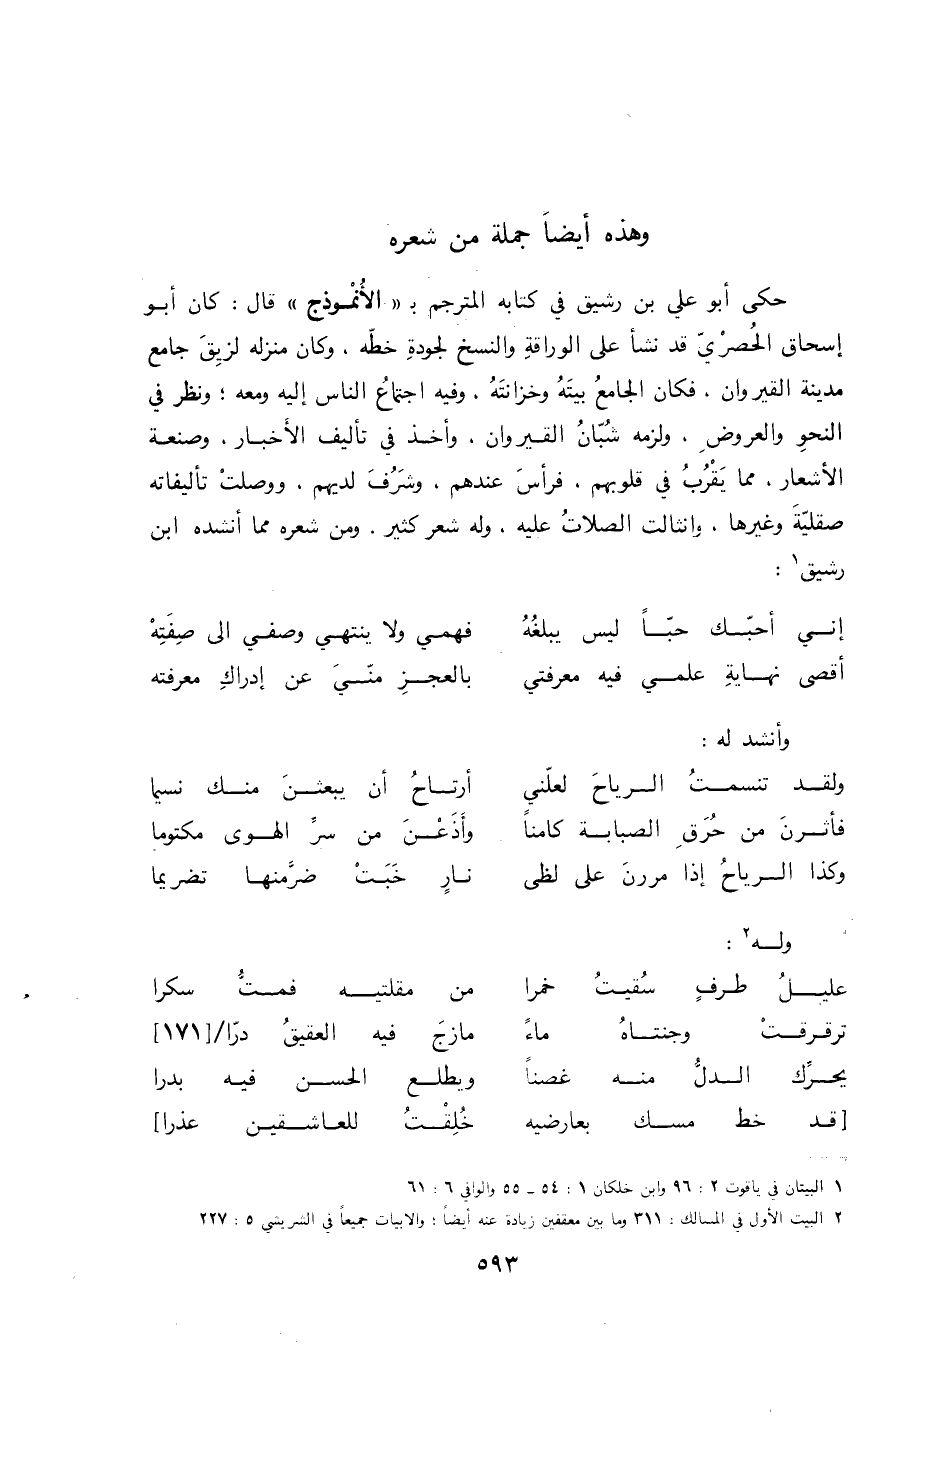 وهذه أيضاً جملة من شعره
حكى أبو علي بن رشيق في كتابه المترجم بـ « الأُنْمُوذج » قال : كان أبو
إسحاق الحُصرْيّ قد نشأ على الوراقةِ والنسخ لجودةِ خطّه ، وكان منزله لزيقَ جامع
مدينة القيروان ، فكان الجامعُ بيتَهُ وخزانتَهُ ، وفيه اجتماعُ الناس إليه ومعه ؛ ونظر في
النحوِ والعروضِ ، ولزمه شُبّانُ القيروان ، وأخذ في تأليف الأخبار ، وصنعة
الأشعار ، مما يَقْرُبُ في قلوبهم ، فرأسَ عندهم ، وشَرُفَ لديهم ، ووصلتْ تأليفاته
صقليّةَ وغيرها ، وانثالت الصلاتُ عليه ، وله شعر كثير . ومن شعره مما أنشده ابن
رشيق١ :
إنـي أحبّـك حبّـاً ليس يبلغُهُ فهمـي ولا ينتهـي وصفـي الى صِفَتِهْ
أقصى نهـايةِ علمـي فيه معرفتي بالعجـزِ منّـيَ عن إدراكِ معرفته
وأنشد له :
ولقـد تنسمـتُ الـرياحَ لعلّني أرتـاحُ أن يبعثـنَ منـك نسيما
فأثرنَ من حُرَقِ الصبابـة كامناً وأَذَعْنَ من سرِّ الهـوى مكتوما
وكذا الـرياحُ إذا مررنَ على لظى نـارٍ خَبَتْ ضرَّمنهـا تضريما
ولـه٢ :
عليـلُ طرفٍ سُقيتُ خمرا من مقلتيـه فمـتُّ سكرا
ترقرقـتْ وجنتـاهُ ماءً مازجَ فيه العقيقُ درّا/[١٧١]
يحـرِّك الـدلُّ منـه غصناً ويطلـع الحسـن فيـه بدرا
[قـد خط مسـك بعارضيه خُلِقْـتُ للعاشـقيـن عذرا]
١ البيتان في ياقوت ٢ : ٩٦ وابن خلكان ١ : ٥٤ ـ ٥٥ والوافي ٦ : ٦١
٢ البيت الأول في المسالك : ٣١١ وما بين معقفين زيادة عنه أيضاً ؛ والابيات جميعاً في الشريشي ٥ : ٢٢٧
٥٩٣